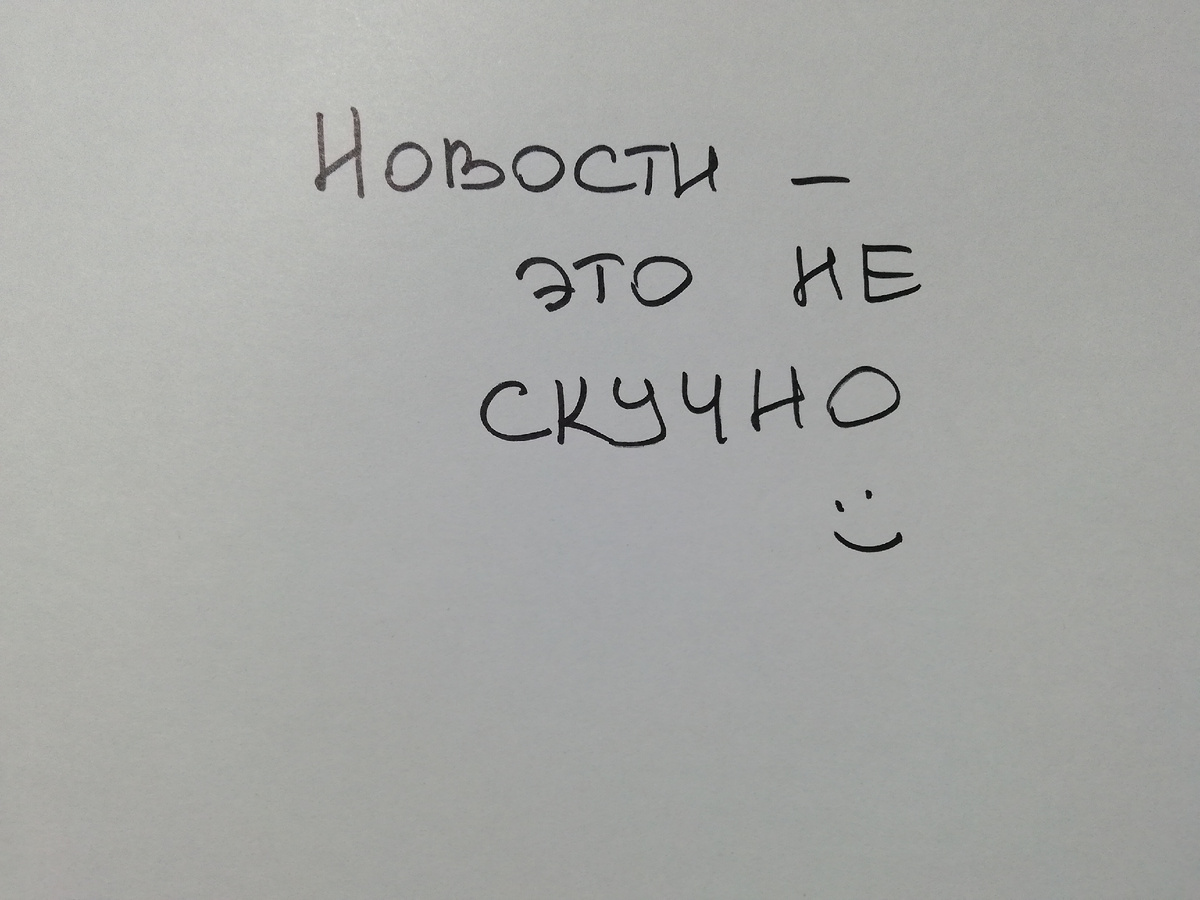 Новости –
это не
скучно